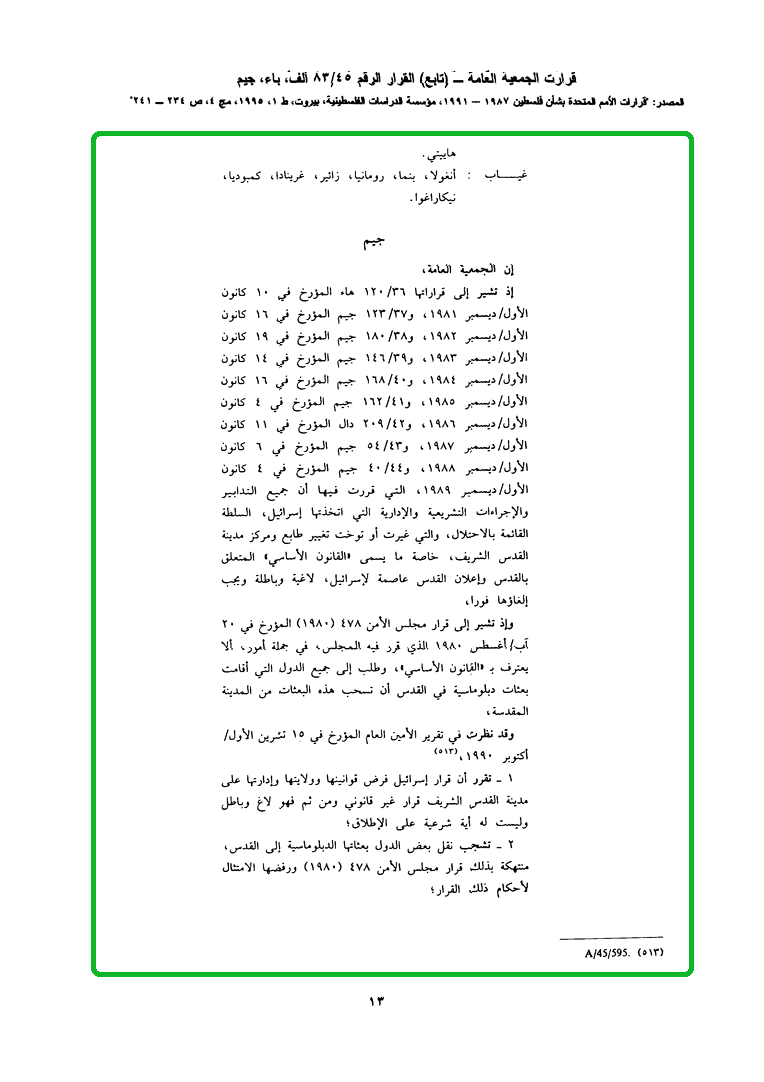 قرارت الجمعية العامة ــ (تابع) القرار الرقم ٨٣/٤٥ ألف، باء، جيم
المصدر: "قرارات الأمم المتحدة بشأن فلسطين ١٩٨٧ – ١٩٩١، مؤسسة الدراسات الفلسطينية، بيروت، ط ١، ١٩٩٥، مج ٤، ص ٢٣٤ – ٢٤١"
هاييتي.
غيـــاب : أنغولا، بنما، رومانيا، زائير، غرينادا، كمبوديا،
نيكاراغوا.
جيم
إن الجمعية العامة،
إذ تشير إلى قراراتها ١٢٠/٣٦ هاء المؤرخ في ١٠ كانون
الأول/ديسمبر ١٩٨١، و١٢٣/٣٧ جيم المؤرخ في ١٦ كانون
الأول/ديسمبر ١٩٨٢، و١٨٠/٣٨ جيم المؤرخ في ١٩ كانون
الأول/ديسمبر ١٩٨٣، و١٤٦/٣٩ جيم المؤرخ في ١٤ كانون
الأول/ديسمبر ١٩٨٤، و١٦٨/٤٠ جيم المؤرخ في ١٦ كانون
الأول/ديسمبر ١٩٨٥، و١٦٢/٤١ جيم المؤرخ في ٤ كانون
الأول/ديسمبر ١٩٨٦، و٢٠٩/٤٢ دال المؤرخ في ١١ كانون
الأول/ديسمبر ١٩٨٧، و٥٤/٤٣ جيم المؤرخ في ٦ كانون
الأول/ديسمبر ١٩٨٨، و٤٠/٤٤ جيم المؤرخ في ٤ كانون
الأول/ديسمبر ١٩٨٩، التي قررت فيها أن جميع التدابير
والإجراءات التشريعية والإدارية التي اتخذتها إسرائيل، السلطة
القائمة بالاحتلال، والتي غيرت أو توخت تغيير طابع ومركز مدينة
القدس الشريف، خاصة ما يسمى «القانون الأساسي» المتعلق
بالقدس وإعلان القدس عاصمة لإسرائيل، لاغية وباطلة ويجب
إلغاؤها فورا،
وإذ تشير إلى قرار مجلس الأمن ٤٧٨ (١٩٨٠) المؤرخ في ٢٠
آب/أغسطس ١٩٨٠ الذي قرر فيه المجلس، في جملة أمور، ألا
يعترف بـ «القانون الأساسي»، وطلب إلى جميع الدول التي أقامت
بعثات دبلوماسية في القدس أن تسحب هذه البعثات من المدينة
المقدسة،
وقد نظرت في تقرير الأمين العام المؤرخ في ١٥ تشرين الأول/
أكتوبر ١٩٩٠،(٥١٣)
١ ــ تقرر أن قرار إسرائيل فرض قوانينها وولايتها وإدارتها على
مدينة القدس الشريف قرار غير قانوني ومن ثم فهو لاغ وباطل
وليست له أية شرعية على الإطلاق؛
٢ ــ تشجب نقل بعض الدول بعثاتها الدبلوماسية إلى القدس،
منتهكة بذلك قرار مجلس الأمن ٤٧٨ (١٩٨٠) ورفضها الامتثال
لأحكام ذلك القرار؛
(٥١٣) A/45/595.
١٣